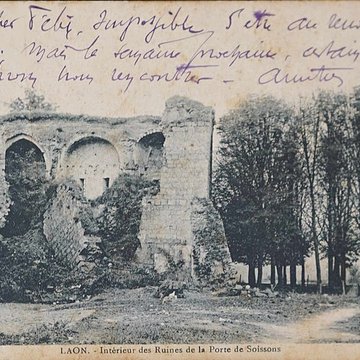 Impossible d'être au
Mais la semaine prochaine, certain
nous rencontrer – Amitiés
LAON. - Intérieur des Ruines de la Porte de Soissons